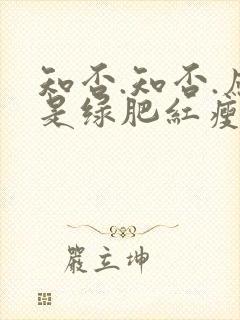 知否.知否.应
是绿肥红瘦
嚴立坤